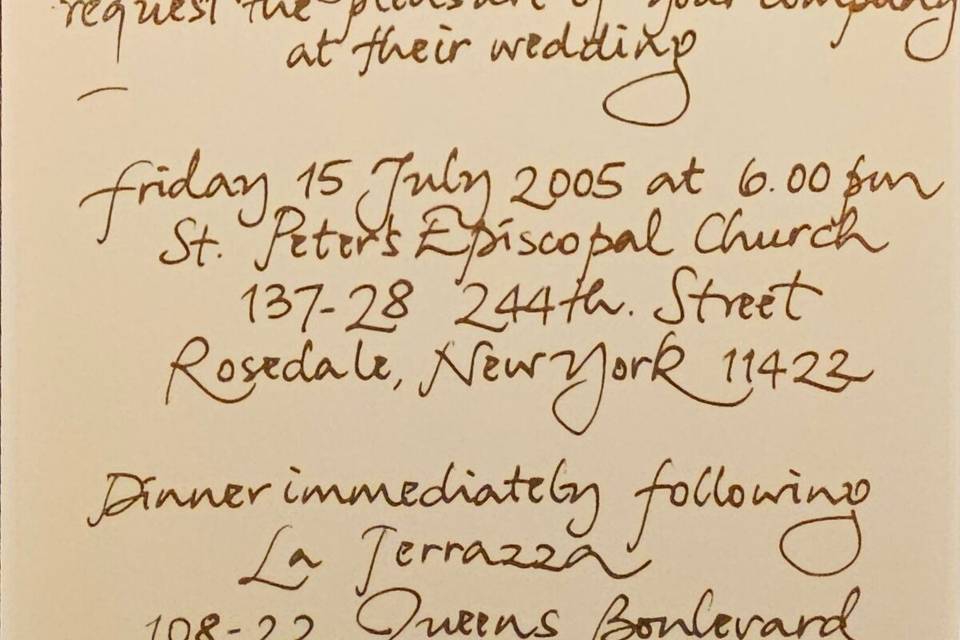 request the pleasure of your company
at their wedding
friday 15 July 2005 at 6.00 pm
St. Peter's Episcopal Church
137-28 244th. Street
Rosedale, New York 11422
Dinner immediately following
La Terrazza
108-22 Queens Boulevard